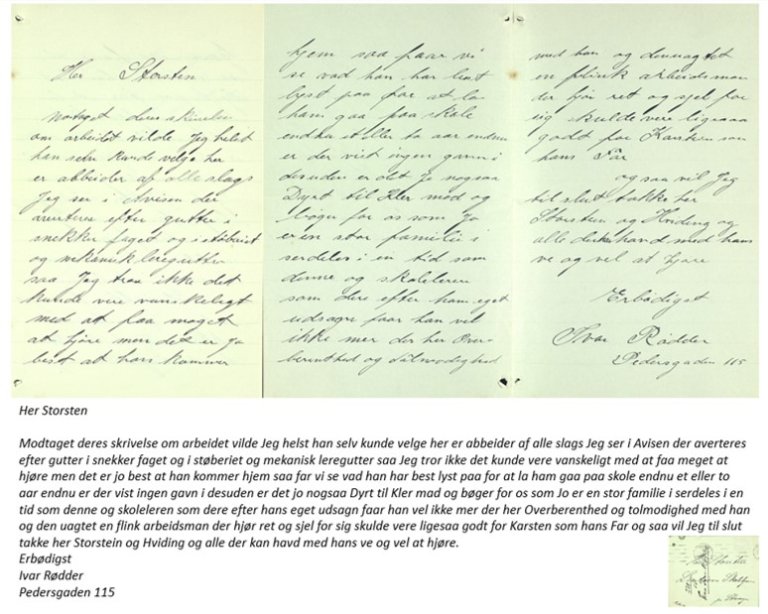 Her Storsten
Motaget deres skrivelse
om arbeidet vilde Jeg helst
han selv kunde velge her
er abbeider af alle slags
Jeg ser i Avisen der
averteres efter gutter i
snekker faget og i støberiet
og mekanisk leregutter
saa Jeg troer ikke det
kunde vere vanskeligt
med att faa meget
at hjøre men det er jo
best at han kommer
hjem saa faar vi
se vad han har best
lyst paa for at la
ham gaa paa skole
endnu et eller to aar endnu
er der vist ingen gavn i
desuden er det jo nogsaa
Dyrt til Kler mad og
bøger for os som Jo
er en stor familie i
serdeles i en tid som
denne og skoleleren
som dere efter hans eget
udsagn faar han vel
ikke mer der her Over-
berenthed og tolmodighed
med han og den uagtet
en flink arbeidsman
der hjør ret og sjel for
sig skulde vere ligesaa
godt for Karsten som
hans Far
og saa vil Jeg
til slut takke her
Storsten og Hviding og
alle der kan havd med hans
ve og vel at hjøre
Erbødigst
Ivar Rødder
Pedersgaden 115
Her Storsten
Modtaget deres skrivelse om arbeidet vilde Jeg helst han selv kunde velge her er abbeider af alle slags Jeg ser i Avisen der averteres
efter gutter i snekker faget og i støberiet og mekanisk leregutter saa Jeg tror ikke det kunde vere vanskeligt med at faa meget at
hjøre men det er jo best at han kommer hjem saa far vi se vad han har best lyst paa for at la ham gaa paa skole endnu et eller to
aar endnu er der vist ingen gavn i desuden er det jo nogsaa Dyrt til Kler mad og bøger for os som Jo er en stor familie i serdeles i en
tid som denne og skoleleren som dere efter hans eget udsagn faar han vel ikke mer der her Overberenthed og tolmodighed med han
og den uagtet en flink arbeidsman der hjør ret og sjel for sig skulde vere ligesaa godt for Karsten som hans Far og saa vil Jeg til slut
takke her Storstein og Hviding og alle der kan havd med hans ve og vel at hjøre.
Erbødigst
Ivar Rødder
Pedersgaden 115